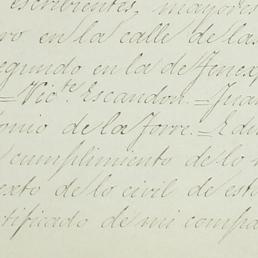 escribientes, mayores
ro en la calle de las
segundo en la de
=Vic.te Escandon.=Juan
onio de la Torre.=Edu
cumplimiento de lo
exto de lo civil de est
rtificado de mi compa